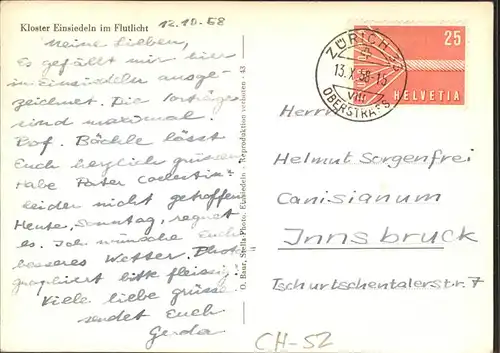 Kloster Einsiedeln im Flutlicht
12.10.58
Meine Lieben,
Es gefällt mir hier
in Einsiedeln ausge-
zeichnet. Die Vorträge
sind maximal.
Prof. Böckle lässt
Euch herzlich grüssen.
Habe Pater Coelestin
leider nicht getroffen.
Heute, Sonntag, regnet
es. Ich wünsche Euch
besseres Wetter. Photo-
graphiert bitte fleissig.
Viele liebe Grüsse
sendet Euch
Gerda
O. Baur, Stella-Photo, Einsiedeln - Reproduktion verboten - 43
ZÜRICH 33
13.X.58-15
VIII
OBERSTRASS
25
HELVETIA
Herrn
Helmut Sorgenfrei
Canisianum
Innsbruck
Tschurtschentalerstr. 7
CH-52